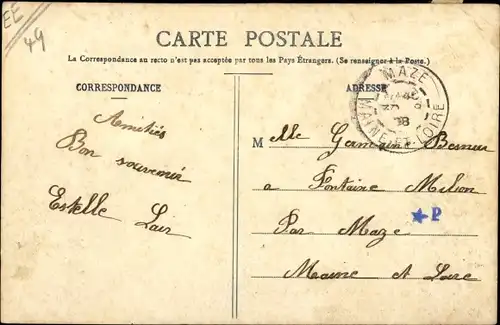 EE
49
CARTE POSTALE
La Correspondance au recto n'est pas acceptée par tous les Pays Étrangers. (Se renseigner à la Poste.)
CORRESPONDANCE
ADRESSE
MAZÉ
MAINE-ET-LOIRE
Amitiés
Bon souvenir
Estelle Lair
Melle Germaine Besnier
a Fontaine Milon
Par Maze
★P
Maine et Loire